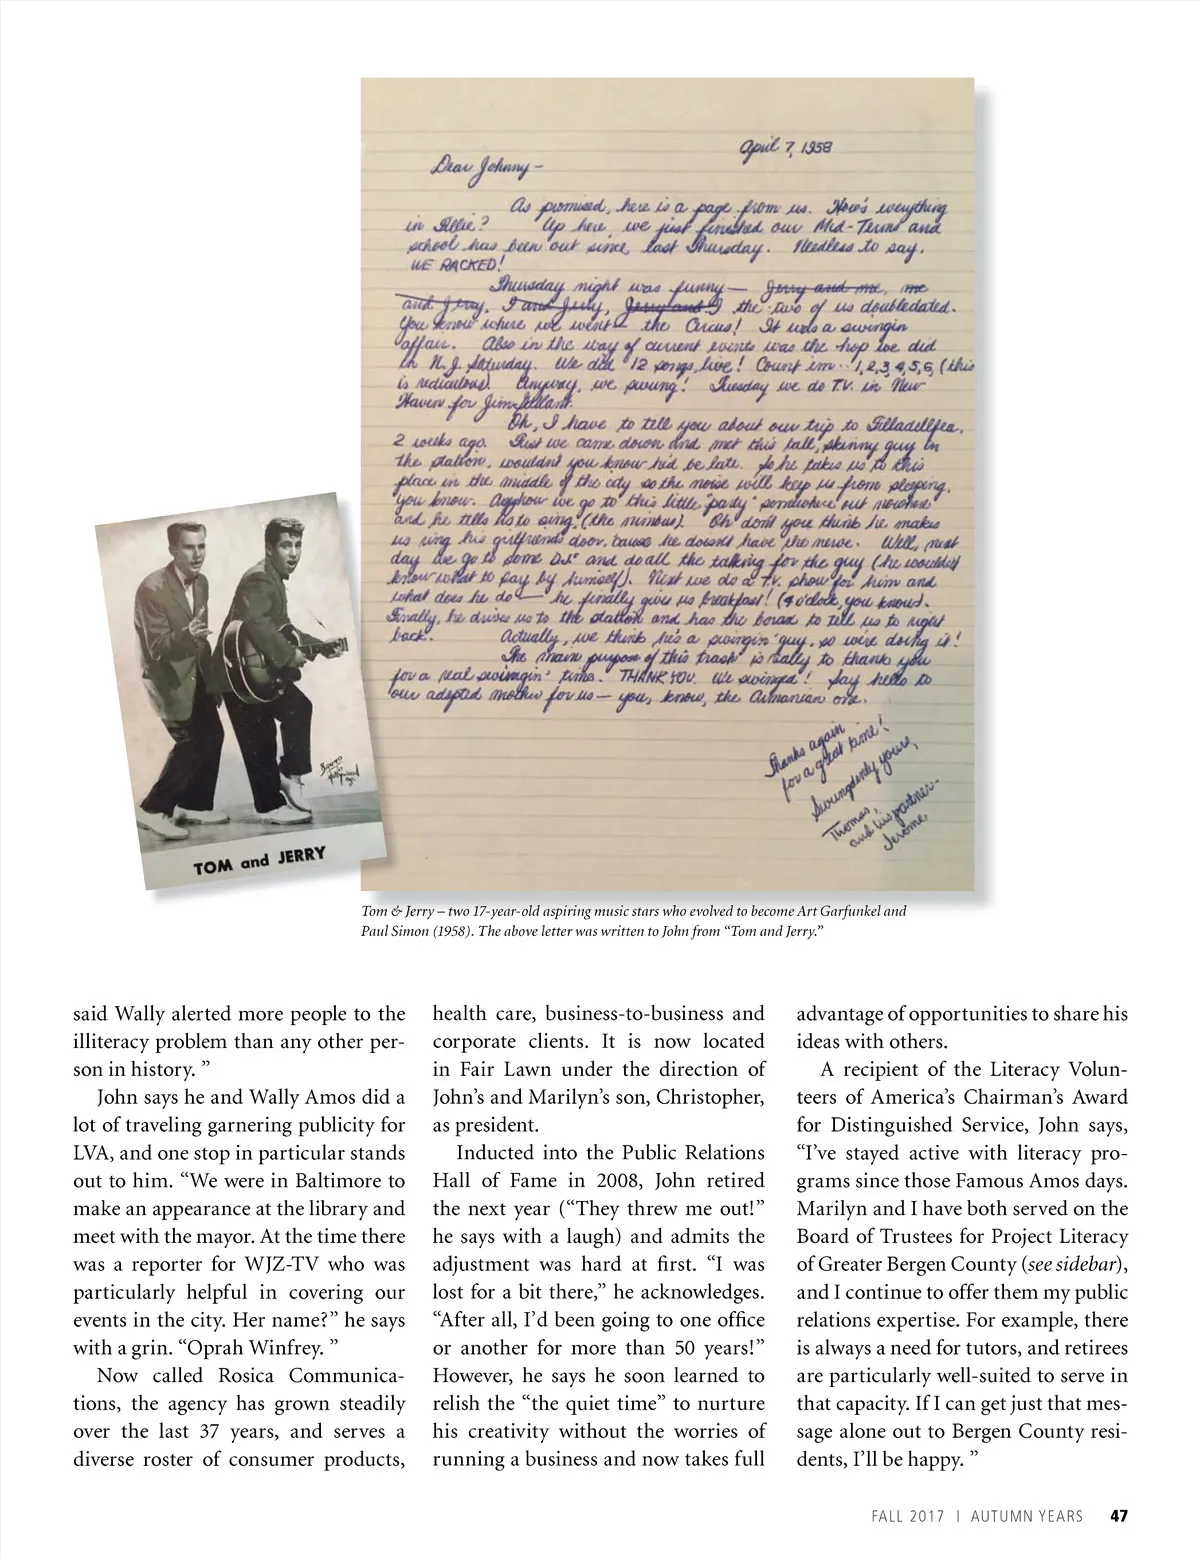 April 7, 1958
Dear Johnny –
As promised, here is a page from us. How's everything
in Fillie? Up here, we just finished our Mid-Terms and
school has been out since last Thursday. Needless to say,
WE RACKED!
Thursday night was funny — Jerry and me, me
and Jerry, I and Jerry, Jerry and I the two of us doubledated.
You know where we went – the Circus! It was a swingin
affair. Also in the way of current events was the hop we did
in N.J. Saturday. We did 12 songs, live! Count em.. 1,2,3,4,5,6, (this
is rediculous). Anyway, we swung! Tuesday we do T.V. in New
Haven for Jim
Oh, I have to tell you about our trip to Filladellfea,
2 weeks ago. First we came down and met this tall, skinny guy in
the station, wouldn't you know he'd be late. So he takes us to this
place in the middle of the city so the noise will keep us from sleeping,
you know. Anyhow we go to this little "party" somewhere out nowhere
and he tells us to sing, (the nimbus). Oh don't you think he makes
us ring his girlfriends door, 'cause he doesn't have the nerve. Well, next
day we go to some D.J.s and do all the talking for the guy (he wouldn't
know what to say by himself). Next we do a T.V. show for him and
what does he do — he finally gives us breakfast! (4 o'clock, you know).
Finally, he drives us to the station and has the to tell us to right
back. Actually, we think he's a swingin' guy, so we're doing it!
The main purpose of this trash is really to thank you
for a real swingin' time. THANK YOU. We swinged! Say hello to
our adopted mother for us — you, know, the Armanian one.
Thanks again
for a great time!
Swungdenly yours,
Thomas,
and his partner-
Jerome
Bruno
of Hollywood
TOM and JERRY
Tom & Jerry – two 17-year-old aspiring music stars who evolved to become Art Garfunkel and
Paul Simon (1958). The above letter was written to John from “Tom and Jerry.”
said Wally alerted more people to the
illiteracy problem than any other per-
son in history. ”
John says he and Wally Amos did a
lot of traveling garnering publicity for
LVA, and one stop in particular stands
out to him. “We were in Baltimore to
make an appearance at the library and
meet with the mayor. At the time there
was a reporter for WJZ-TV who was
particularly helpful in covering our
events in the city. Her name?” he says
with a grin. “Oprah Winfrey. ”
Now called Rosica Communica-
tions, the agency has grown steadily
over the last 37 years, and serves a
diverse roster of consumer products,
health care, business-to-business and
corporate clients. It is now located
in Fair Lawn under the direction of
John’s and Marilyn’s son, Christopher,
as president.
Inducted into the Public Relations
Hall of Fame in 2008, John retired
the next year (“They threw me out!”
he says with a laugh) and admits the
adjustment was hard at first. “I was
lost for a bit there,” he acknowledges.
“After all, I’d been going to one office
or another for more than 50 years!”
However, he says he soon learned to
relish the “the quiet time” to nurture
his creativity without the worries of
running a business and now takes full
advantage of opportunities to share his
ideas with others.
A recipient of the Literacy Volun-
teers of America’s Chairman’s Award
for Distinguished Service, John says,
“I’ve stayed active with literacy pro-
grams since those Famous Amos days.
Marilyn and I have both served on the
Board of Trustees for Project Literacy
of Greater Bergen County (see sidebar),
and I continue to offer them my public
relations expertise. For example, there
is always a need for tutors, and retirees
are particularly well-suited to serve in
that capacity. If I can get just that mes-
sage alone out to Bergen County resi-
dents, I’ll be happy. ”
FALL 2017 I AUTUMN YEARS 47